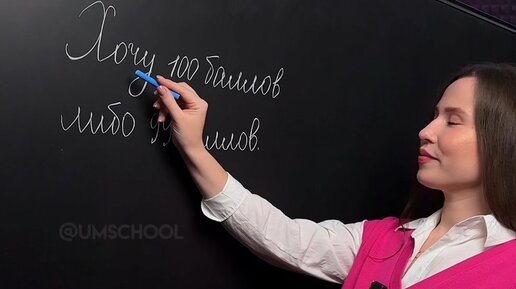 Хочу 100 баллов
либо
@UMSCHOOL